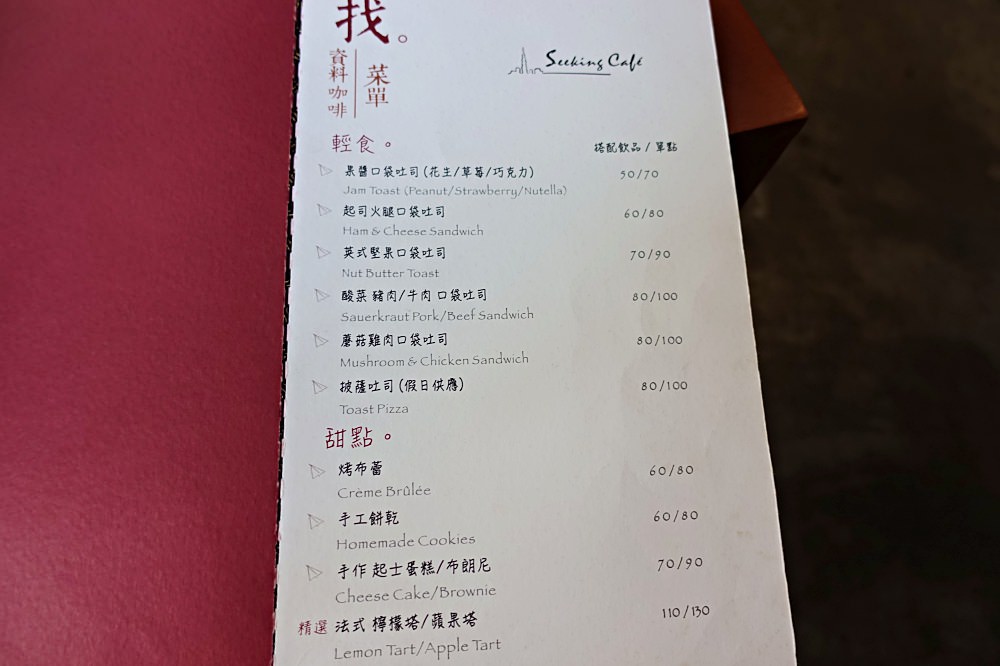 找。
資料咖啡
菜單
Seeking Café
輕食。
搭配飲品 / 單點
果醬口袋吐司 (花生/草莓/巧克力) 50/70
Jam Toast (Peanut/Strawberry/Nutella)
起司火腿口袋吐司 60/80
Ham & Cheese Sandwich
英式堅果口袋吐司 70/90
Nut Butter Toast
酸菜 豬肉/牛肉 口袋吐司 80/100
Sauerkraut Pork/Beef Sandwich
蘑菇雞肉口袋吐司 80/100
Mushroom & Chicken Sandwich
披薩吐司 (假日供應) 80/100
Toast Pizza
甜點。
烤布蕾 60/80
Crème Brûlée
手工餅乾 60/80
Homemade Cookies
手作 起士蛋糕/布朗尼 70/90
Cheese Cake/Brownie
精選 法式 檸檬塔/蘋果塔 110/130
Lemon Tart/Apple Tart